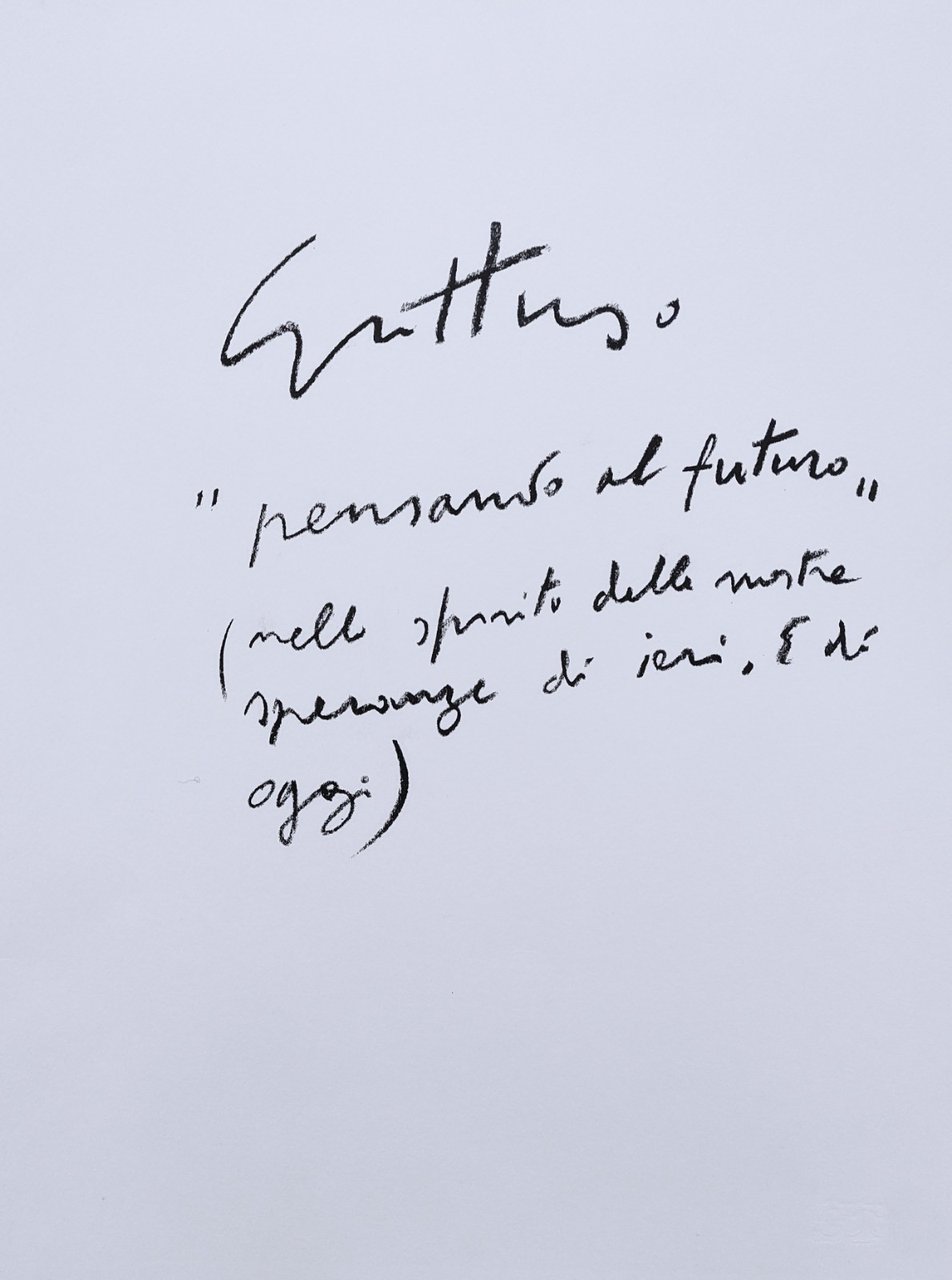 Guttuso
"pensando al futuro"
(nello spirito delle nostre
speranze di ieri. E di
oggi)